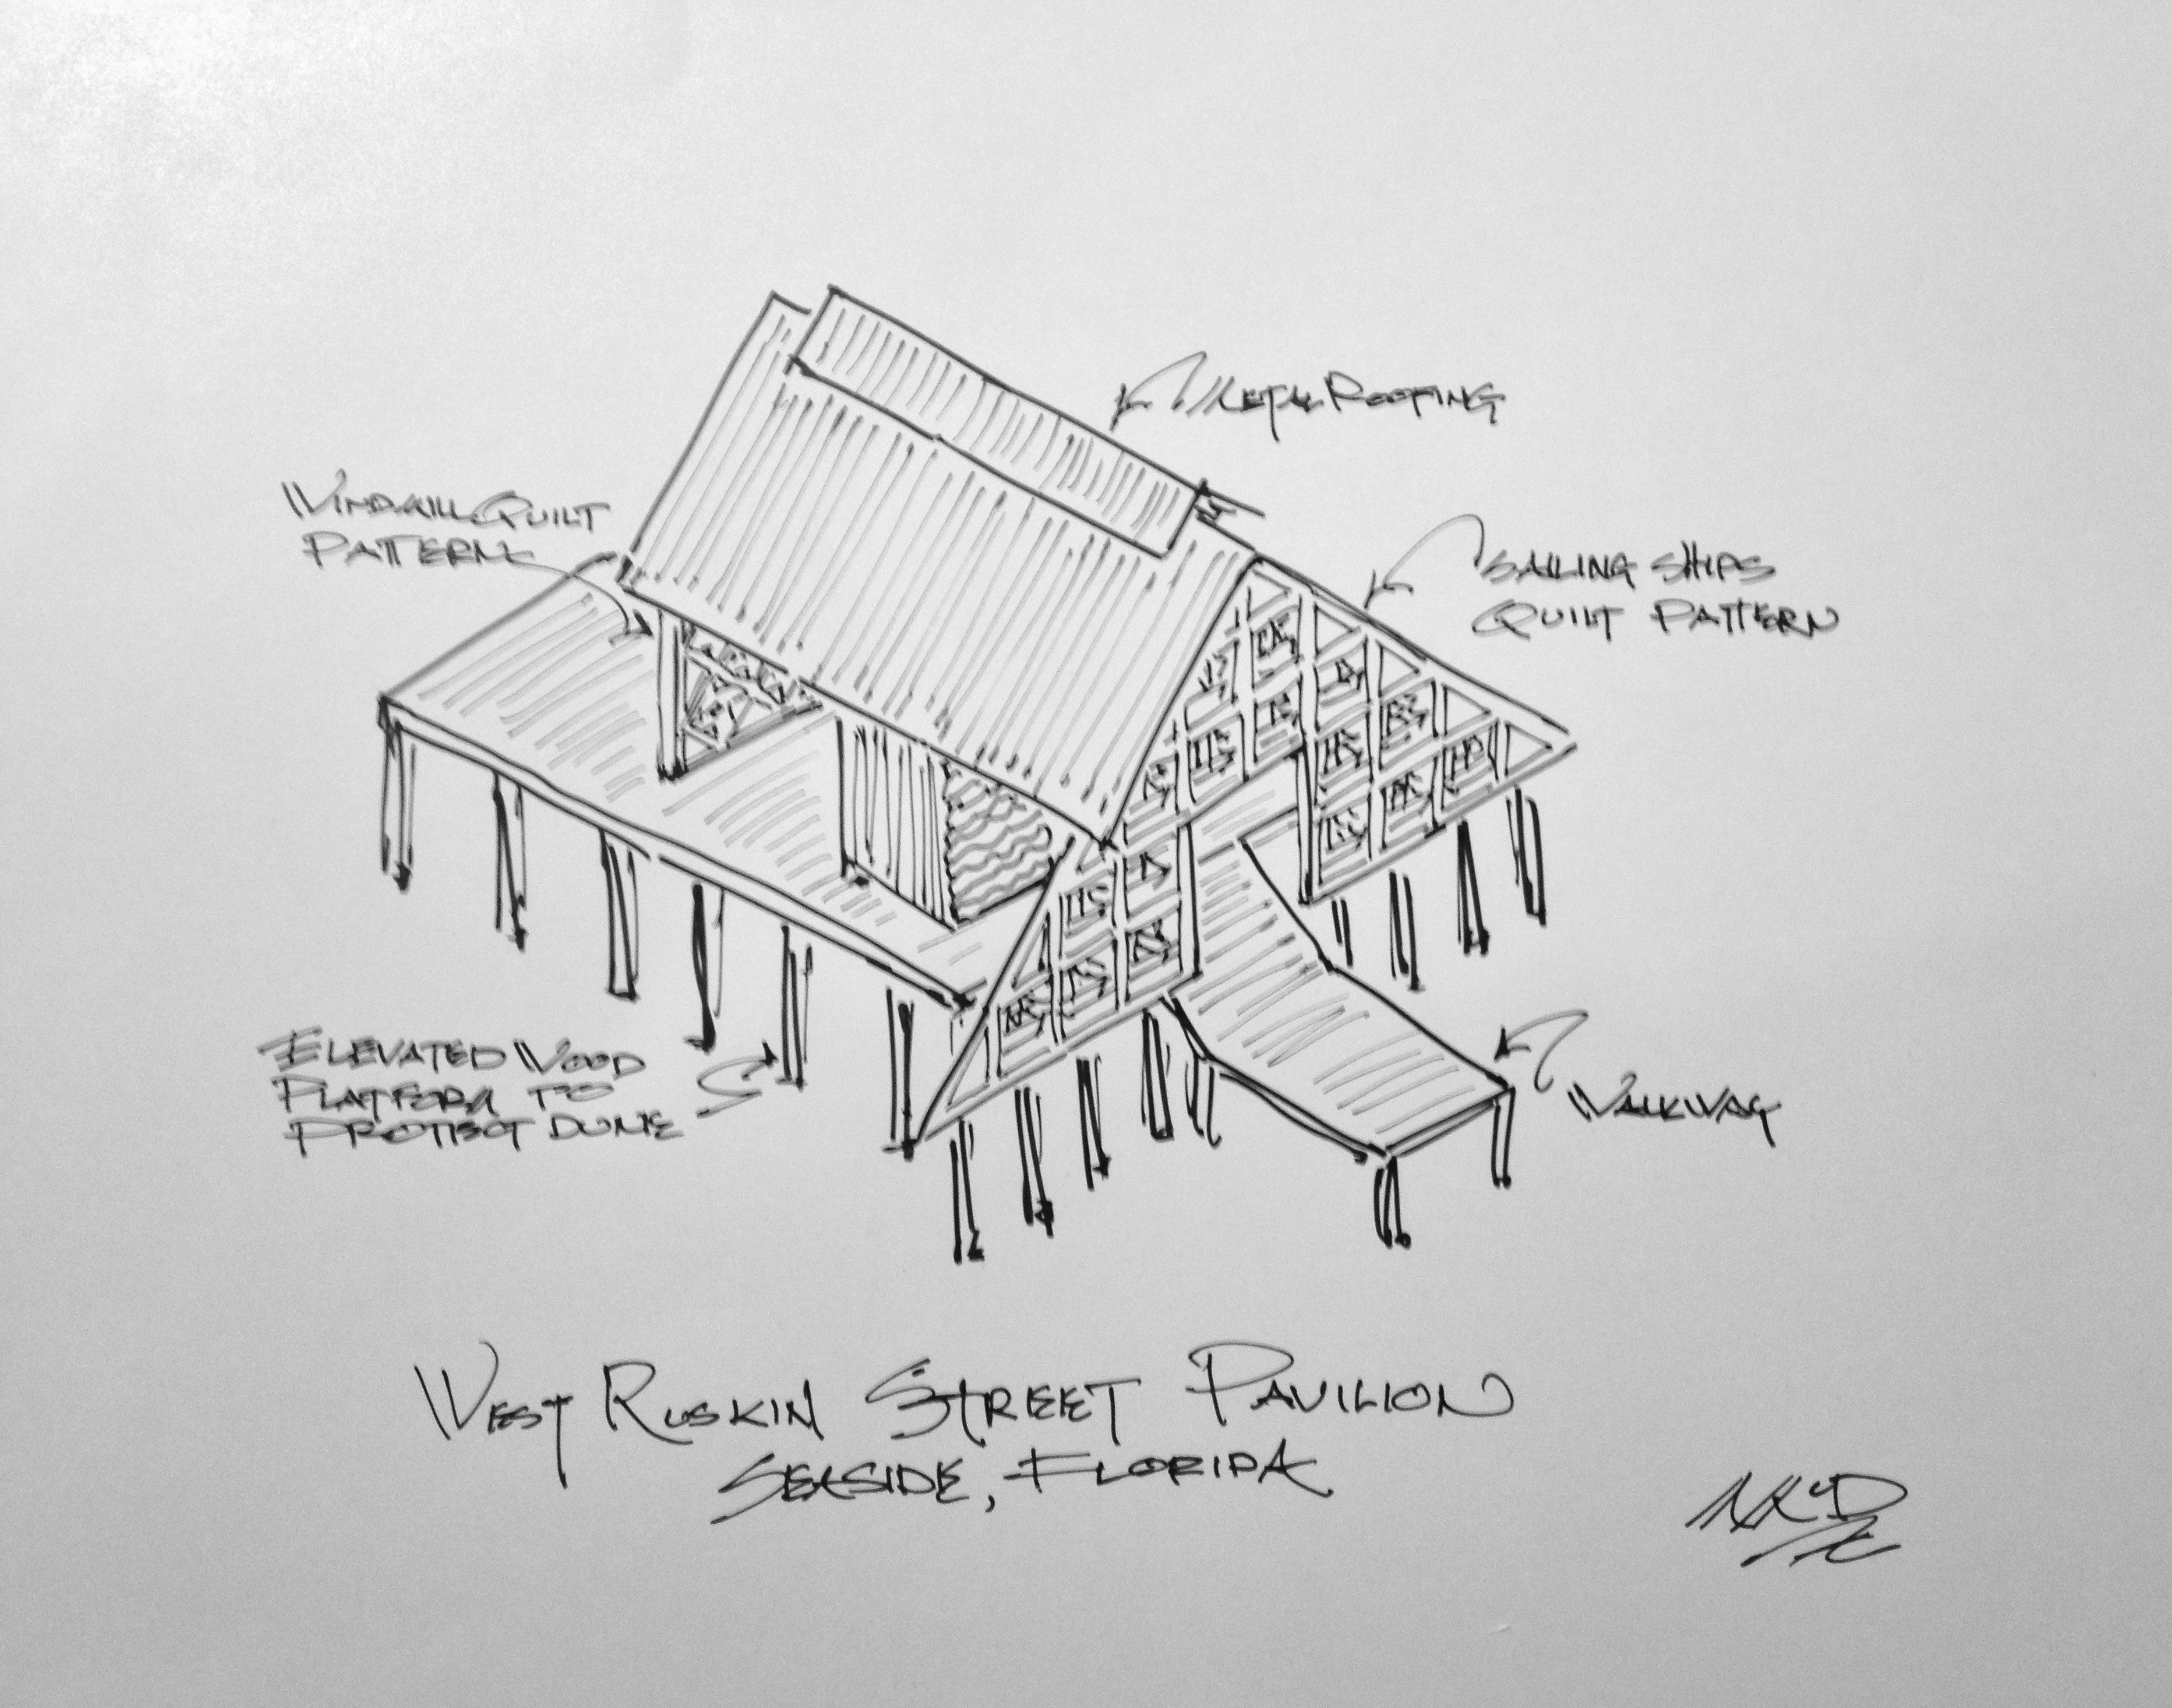 METAL ROOFING
WINDMILL QUILT
PATTERN
SAILING SHIPS
QUILT PATTERN
ELEVATED WOOD
PLATFORM TO
PROTECT DUNE
WALKWAY
WEST RUSKIN STREET PAVILION
SEASIDE, FLORIDA